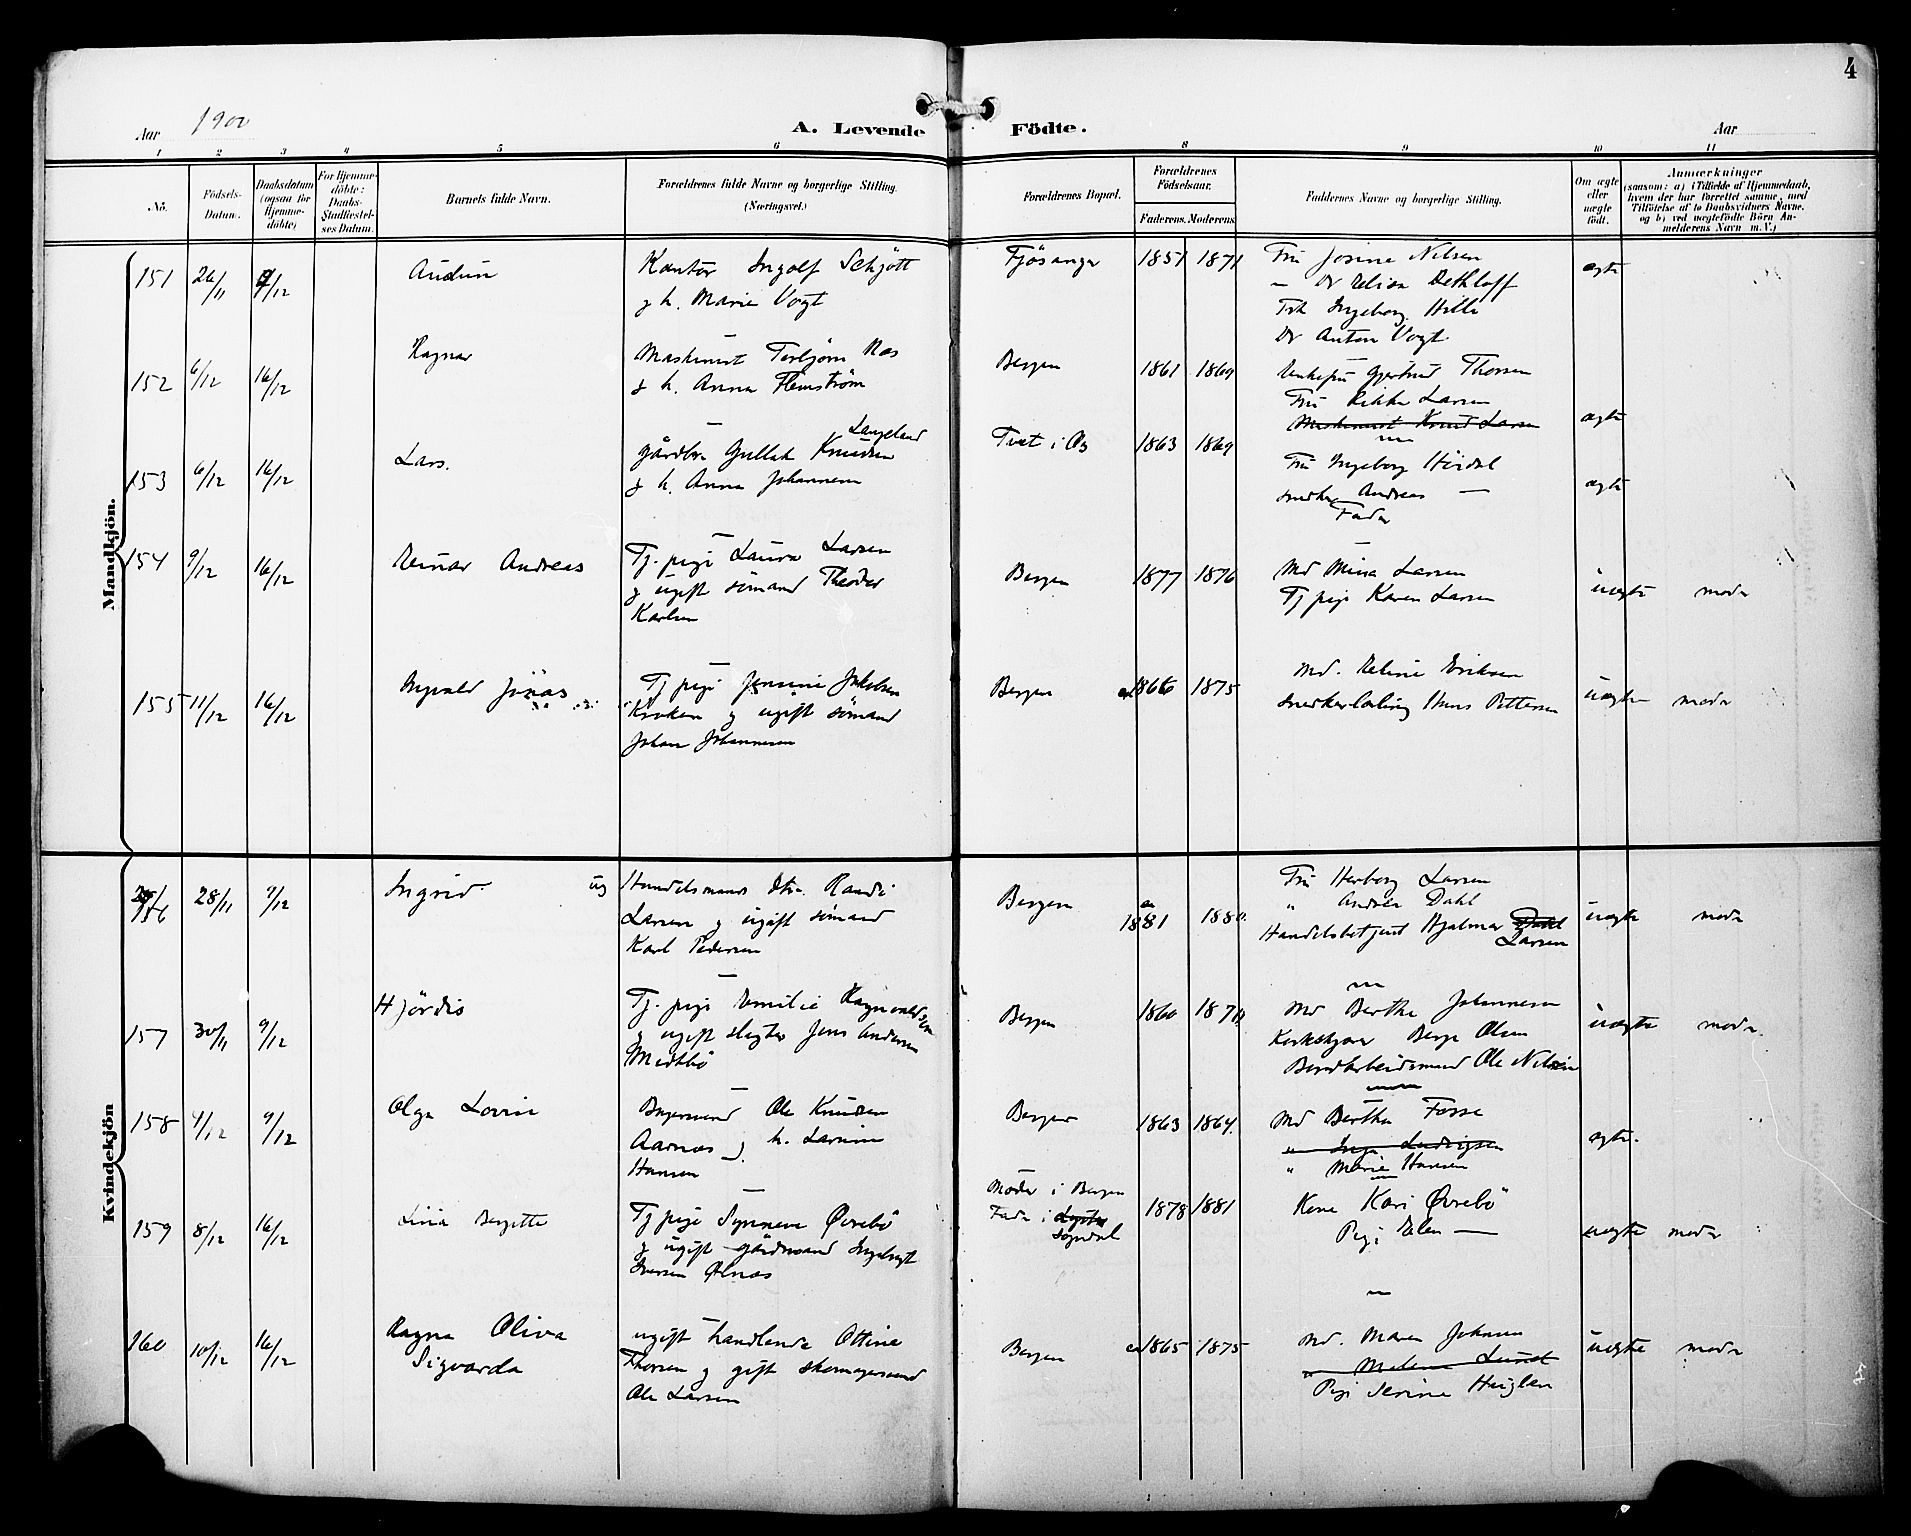 4
Aar 1900
A. Levende Födte.
Aar
1 2 3 4 5 6 8 9 10 11
No.
Födsels-
Datum.
Daabsdatum
(ogsaa for
Hjemme-
döbte)
For Hjemme-
döbte:
Daabs-
Stadfæstel-
ses Datum.
Barnets fulde Navn.
Forældrenes fulde Navne og borgerlige Stilling.
(Næringsvei.)
Forældrenes Bopæl.
Forældrenes
Födselsaar.
Faderens. Moderens.
Faddernes Navne og borgerlige Stilling.
Om ægte
eller
uægte
födt.
Anmærkninger
(saasom: a) i Tilfælde af Hjemmedaab,
hvem der har forrettet samme, med
Tilföielse af to Daabsvidners Navne.
og b) ved uægtefödte Börn An-
melderens Navn m. V.)
Mandkjön.
151 26/11 9/12 Audun
Kantor Ingolf Schjött
g h. Marie Vogt
Fjösanger 1851 1871
Fru Josine Nilsen
Dethloff
Frk Ingeborg Hille
Dr Anton Vogt
ægte
152 6/12 16/12 Ragnar
Maskinist Torbjörn Næs
g h. Anna Flemström
Bergen 1861 1869
Enkefru Gjertrud Thorsen
Fru Rikke Larsen
Maskinist Knud Larsen
ægte
153 6/12 16/12 Lars.
Langeland
gårdbr. Gullak Knudsen
g h. Anna Johannesen
Tvet i Os 1863 1869
Fru Ingeborg Hördal
snedker Andreas —
Fader
ægte
154 9/12 16/12 Einar Andreas
Tj. pige Laura Larsen
g ugift sömand Theodor
Karlsen
Bergen 1877 1876
Md Mina Larsen
Tj pige Karen Larsen
uægte moder
155 11/12 16/12 Jonas
Tj pige Jensine Jakobsen
Kroken g ugift sömand
Johan Johannesen
Bergen 1866 1875
Md. Eline Eriksen
Snedkerlærling Hans Pettersen
uægte moder
Kvindekjön
156 28/11 9/12 Ingrid
ug Handelsmands dtr. Randi
Larsen g ugift sömand
Karl Pedersen
Bergen 1881 1880.
Fru Herborg Larsen
" Andrea Dahl
Handelsbetjent Hjalmar Dahl
Larsen
uægte moder
157 30/11 9/12 Hjördis
Tj. pige Emilie Ragnvaldsen
g ugift slagter Jens Andersen
Midtbö
Bergen 1860 1871
Md Berthe Johannesen
Korkskjærer Berge Olsen
Ole Nilsen
uægte moder
158 4/12 9/12 Olga Lovise
Bagersvend Ole Knudsen
Aarnæs g h. Larsine
Hansen
Bergen 1863 1864.
Md Bertha Fosse
" Inga Ludvigsen
" Marie Hansen
ægte.
159 8/12 16/12 Lina Bergitte
Tj pige Synneve Övrebö
g ugift gårdmand Ingebrigt
Iversen Ölnæs
Moder i Bergen
Fader i Lyster
Sogndal
1878 1881
Kone Kari Övrebö
Pige Elen —
uægte moder
160 10/12 16/12 Ragna Oliva
Sigvarda
ugift handlende Ottine
Thorsen g gift skomagersvend
Ole Larsen
Bergen ca 1865 1875
Md. Maren Johnsen
" Malena Lund
Pige Serine Hauglan
uægte moder